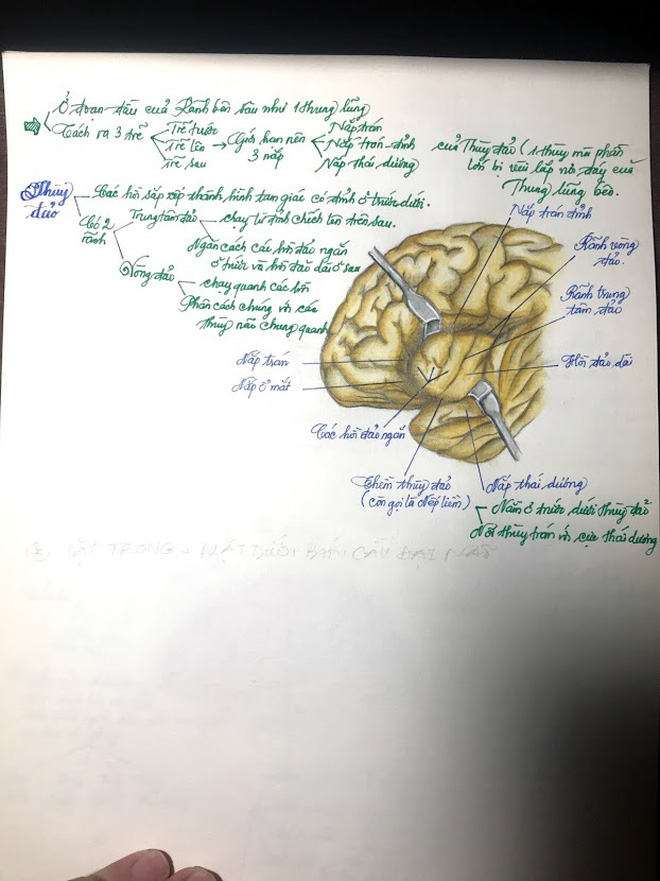 Ở đoạn đầu của Rãnh bên sâu như 1 thung lũng
Tách ra 3 trẽ
Trẽ trước
Trẽ lên
Trẽ sau
→ Giới hạn nên 3 nắp
Nắp trán
Nắp trán đỉnh
Nắp thái dương
của Thùy đảo (1 thùy mà phần
lớn bị vùi lấp nơi đáy của
Thung lũng
Thùy đảo
Các hồi sắp xếp thành hình tam giác có đỉnh ở trước dưới.
Có 2 rãnh
Trung tâm đảo
chạy từ đỉnh chếch lên trên sau.
Ngăn cách các hồi đảo ngắn
ở trước và hồi đảo dài ở sau
Vòng đảo
chạy quanh các hồi
Phân cách chúng với các
thùy não chung quanh
Nắp trán đỉnh
Rãnh vòng đảo.
Rãnh trung tâm đảo
Hồi đảo dài
Nắp trán
Nắp ổ mắt
Các hồi đảo ngắn
Thềm thùy đảo
(còn gọi là Nếp liềm)
Nắp thái dương
Nằm ở trước dưới thùy đảo
Nối thùy trán với cực thái dương
MẶT TRONG & MẶT DƯỚI BÁN CẦU ĐẠI NÃO